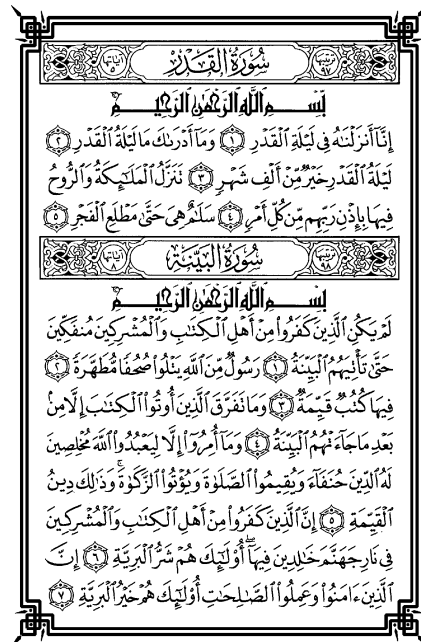 ترتيبها ٩٧ سُورَةُ القَدْرِ آياتها ٥
بِسْمِ اللَّهِ الرَّحْمَٰنِ الرَّحِيمِ
إِنَّا أَنزَلْنَٰهُ فِى لَيْلَةِ ٱلْقَدْرِ ۝١ وَمَآ أَدْرَىٰكَ مَا لَيْلَةُ ٱلْقَدْرِ ۝٢
لَيْلَةُ ٱلْقَدْرِ خَيْرٌ مِّنْ أَلْفِ شَهْرٍ ۝٣ تَنَزَّلُ ٱلْمَلَٰٓئِكَةُ وَٱلرُّوحُ
فِيهَا بِإِذْنِ رَبِّهِم مِّن كُلِّ أَمْرٍ ۝٤ سَلَٰمٌ هِىَ حَتَّىٰ مَطْلَعِ ٱلْفَجْرِ ۝٥
ترتيبها ٩٨ سُورَةُ البَيِّنَةِ آياتها ٨
بِسْمِ اللَّهِ الرَّحْمَٰنِ الرَّحِيمِ
لَمْ يَكُنِ ٱلَّذِينَ كَفَرُوا۟ مِنْ أَهْلِ ٱلْكِتَٰبِ وَٱلْمُشْرِكِينَ مُنفَكِّينَ
حَتَّىٰ تَأْتِيَهُمُ ٱلْبَيِّنَةُ ۝١ رَسُولٌ مِّنَ ٱللَّهِ يَتْلُوا۟ صُحُفًا مُّطَهَّرَةً ۝٢
فِيهَا كُتُبٌ قَيِّمَةٌ ۝٣ وَمَا تَفَرَّقَ ٱلَّذِينَ أُوتُوا۟ ٱلْكِتَٰبَ إِلَّا مِنۢ
بَعْدِ مَا جَآءَتْهُمُ ٱلْبَيِّنَةُ ۝٤ وَمَآ أُمِرُوٓا۟ إِلَّا لِيَعْبُدُوا۟ ٱللَّهَ مُخْلِصِينَ
لَهُ ٱلدِّينَ حُنَفَآءَ وَيُقِيمُوا۟ ٱلصَّلَوٰةَ وَيُؤْتُوا۟ ٱلزَّكَوٰةَ ۚ وَذَٰلِكَ دِينُ
ٱلْقَيِّمَةِ ۝٥ إِنَّ ٱلَّذِينَ كَفَرُوا۟ مِنْ أَهْلِ ٱلْكِتَٰبِ وَٱلْمُشْرِكِينَ
فِى نَارِ جَهَنَّمَ خَٰلِدِينَ فِيهَآ ۚ أُو۟لَٰٓئِكَ هُمْ شَرُّ ٱلْبَرِيَّةِ ۝٦ إِنَّ
ٱلَّذِينَ ءَامَنُوا۟ وَعَمِلُوا۟ ٱلصَّٰلِحَٰتِ أُو۟لَٰٓئِكَ هُمْ خَيْرُ ٱلْبَرِيَّةِ ۝٧